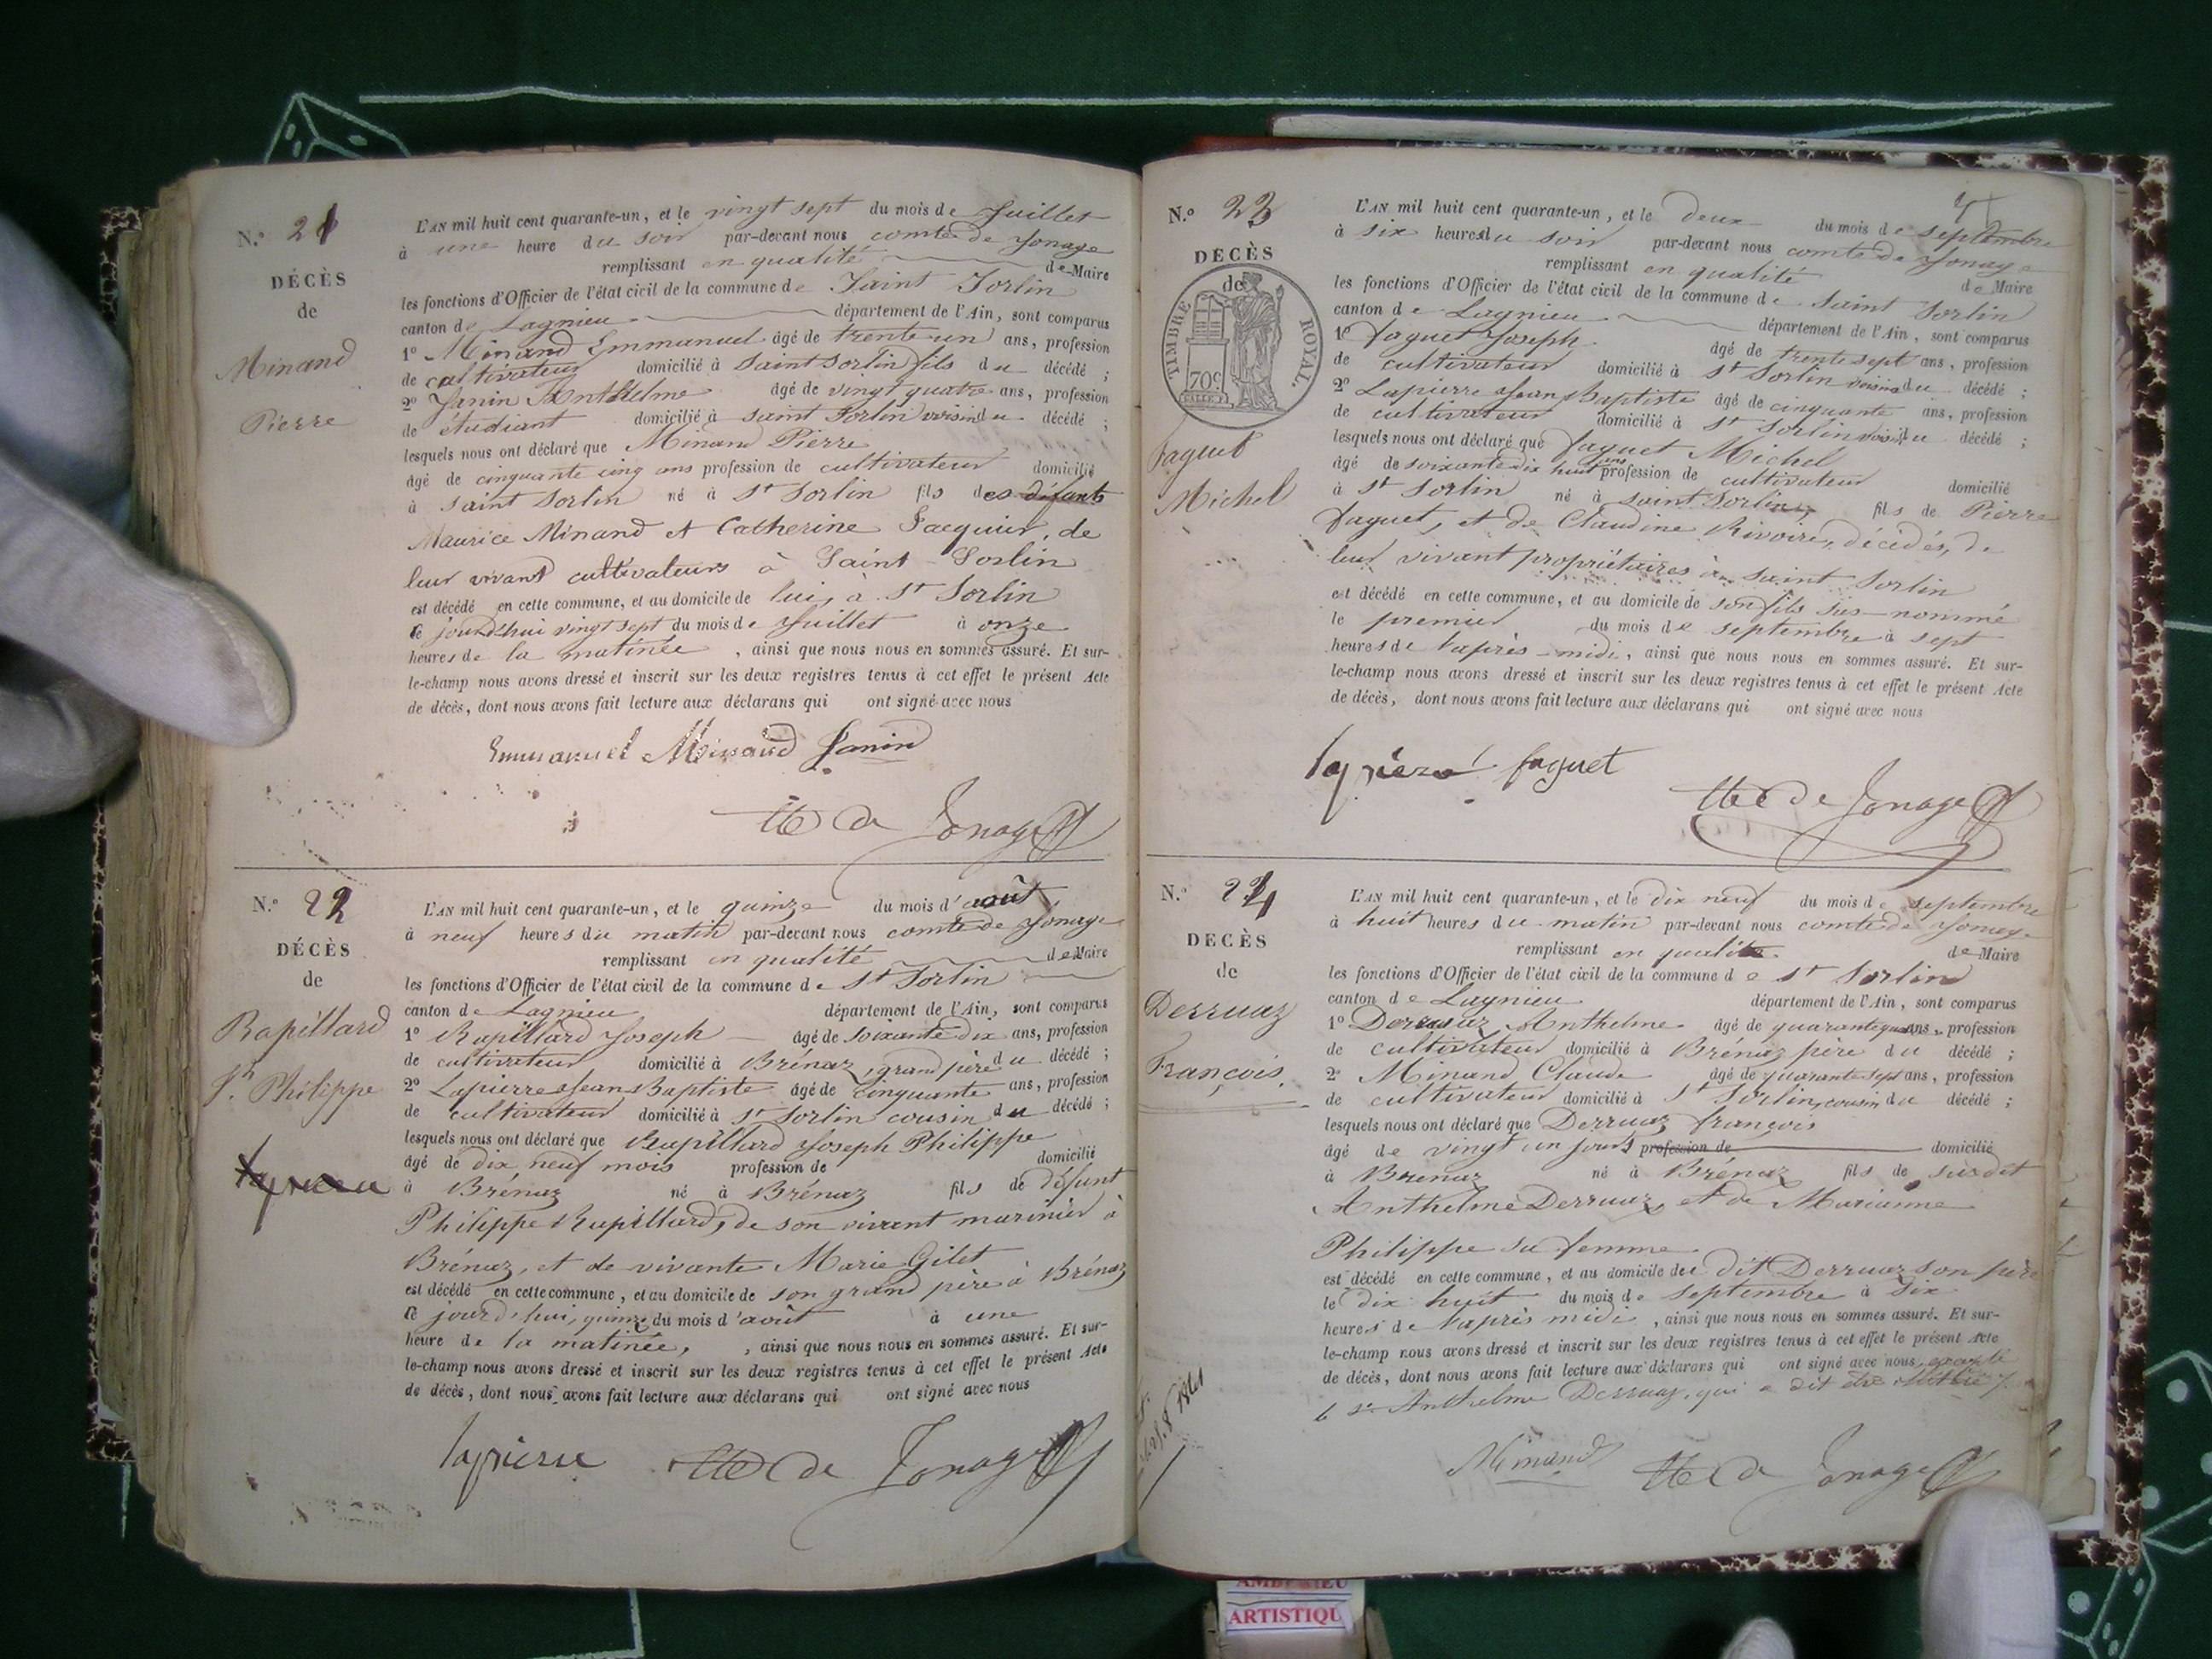 N.o 21
DÉCÈS
de
Minand
Pierre
L'AN mil huit cent quarante-un, et le vingt sept du mois de Juillet
à une heure du soir par-devant nous comte de Jonage
remplissant en qualité de Maire
les fonctions d'Officier de l'état civil de la commune de Saint Sorlin
canton de Lagnieu département de l'Ain, sont comparus
1o Minand Emmanuel âgé de trente-un ans, profession
de cultivateur domicilié à Saint Sorlin fils du décédé ;
2o Janin Anthelme âgé de vingt quatre ans, profession
de étudiant domicilié à saint Sorlin voisin du décédé ;
lesquels nous ont déclaré que Minand Pierre
âgé de cinquante cinq ans profession de cultivateur domicilié
à Saint Sorlin né à St Sorlin fils des défunts
Maurice Minand et Catherine Jacquin, de
leur vivant cultivateurs à Saint Sorlin
est décédé en cette commune, et au domicile de lui, à St Sorlin
ce jourd'hui vingt sept du mois de Juillet à onze
heures de la matinée , ainsi que nous nous en sommes assuré. Et sur-
le-champ nous avons dressé et inscrit sur les deux registres tenus à cet effet le présent Acte
de décès, dont nous avons fait lecture aux déclarans qui ont signé avec nous
Emmanuel Minand Janin
Cte de Jonage
N.o 22
DÉCÈS
de
Rapillard
Jh Philippe
lapierre
L'AN mil huit cent quarante-un, et le quinze du mois d'août
à neuf heures du matin par-devant nous comte de Jonage
remplissant en qualité de Maire
les fonctions d'Officier de l'état civil de la commune de St Sorlin
canton de Lagnieu département de l'Ain, sont comparus
1o Rapillard Joseph âgé de soixante dix ans, profession
de cultivateur domicilié à Brénaz, grand père du décédé ;
2o Lapierre Jean Baptiste âgé de cinquante ans, profession
de cultivateur domicilié à St Sorlin cousin du décédé ;
lesquels nous ont déclaré que Rapillard Joseph Philippe
âgé de dix neuf mois profession de domicilié
à Brénaz né à Brénaz fils de défunt
Philippe Rapillard, de son vivant marinier à
Brénaz, et de vivante Marie Gilet
est décédé en cette commune, et au domicile de son grand père à Brénaz
ce jourd'hui, quinze du mois d'août à une
heure de la matinée, , ainsi que nous nous en sommes assuré. Et sur-
le-champ nous avons dressé et inscrit sur les deux registres tenus à cet effet le présent Acte
de décès, dont nous avons fait lecture aux déclarans qui ont signé avec nous
lapierre Cte de Jonage
N.o 23
DÉCÈS
de
TIMBRE ROYAL.
70c
Faguet
Michel
L'AN mil huit cent quarante-un, et le deux du mois de septembre
à six heures du soir par-devant nous comte de Jonage
remplissant en qualité de Maire
les fonctions d'Officier de l'état civil de la commune de Saint Sorlin
canton de Lagnieu département de l'Ain, sont comparus
1o Faguet Joseph âgé de trente sept ans, profession
de cultivateur domicilié à St Sorlin voisin du décédé ;
2o Lapierre Jean Baptiste âgé de cinquante ans, profession
de cultivateur domicilié à St Sorlin voisin du décédé ;
lesquels nous ont déclaré que Faguet Michel
âgé de soixante dix huit ans profession de cultivateur domicilié
à St Sorlin né à Saint Sorlin, fils de Pierre
Faguet, et de Claudine Rivoire, décédés, de
leur vivant propriétaires à Saint Sorlin
est décédé en cette commune, et au domicile de son fils sus-nommé
le premier du mois de septembre à sept
heures de l'après-midi, ainsi que nous nous en sommes assuré. Et sur-
le-champ nous avons dressé et inscrit sur les deux registres tenus à cet effet le présent Acte
de décès, dont nous avons fait lecture aux déclarans qui ont signé avec nous
lapierre faguet
Cte de Jonage
N.o 24
DÉCÈS
de
Derruaz
François.
L'AN mil huit cent quarante-un, et le dix neuf du mois de septembre
à huit heures du matin par-devant nous comte de Jonage
remplissant en qualité de Maire
les fonctions d'Officier de l'état civil de la commune de St Sorlin
canton de Lagnieu département de l'Ain, sont comparus
1o Derruaz Anthelme âgé de quarante ans, profession
de cultivateur domicilié à Brénaz père du décédé ;
2o Minand Claude âgé de quarante sept ans, profession
de cultivateur domicilié à St Sorlin, cousin du décédé ;
lesquels nous ont déclaré que Derruaz françois
âgé de vingt un jours profession de domicilié
à Brénaz né à Brénaz fils de susdit
Anthelme Derruaz, et de Marianne
Philippe sa femme
est décédé en cette commune, et au domicile du dit Derruaz son père
le dix huit du mois de septembre à dix
heures de l'après midi , ainsi que nous nous en sommes assuré. Et sur-
le-champ nous avons dressé et inscrit sur les deux registres tenus à cet effet le présent Acte
de décès, dont nous avons fait lecture aux déclarans qui ont signé avec nous, excepté
le sr Anthelme Derruaz, qui a dit être illettré
Minand Cte de Jonage
ARTISTIQU